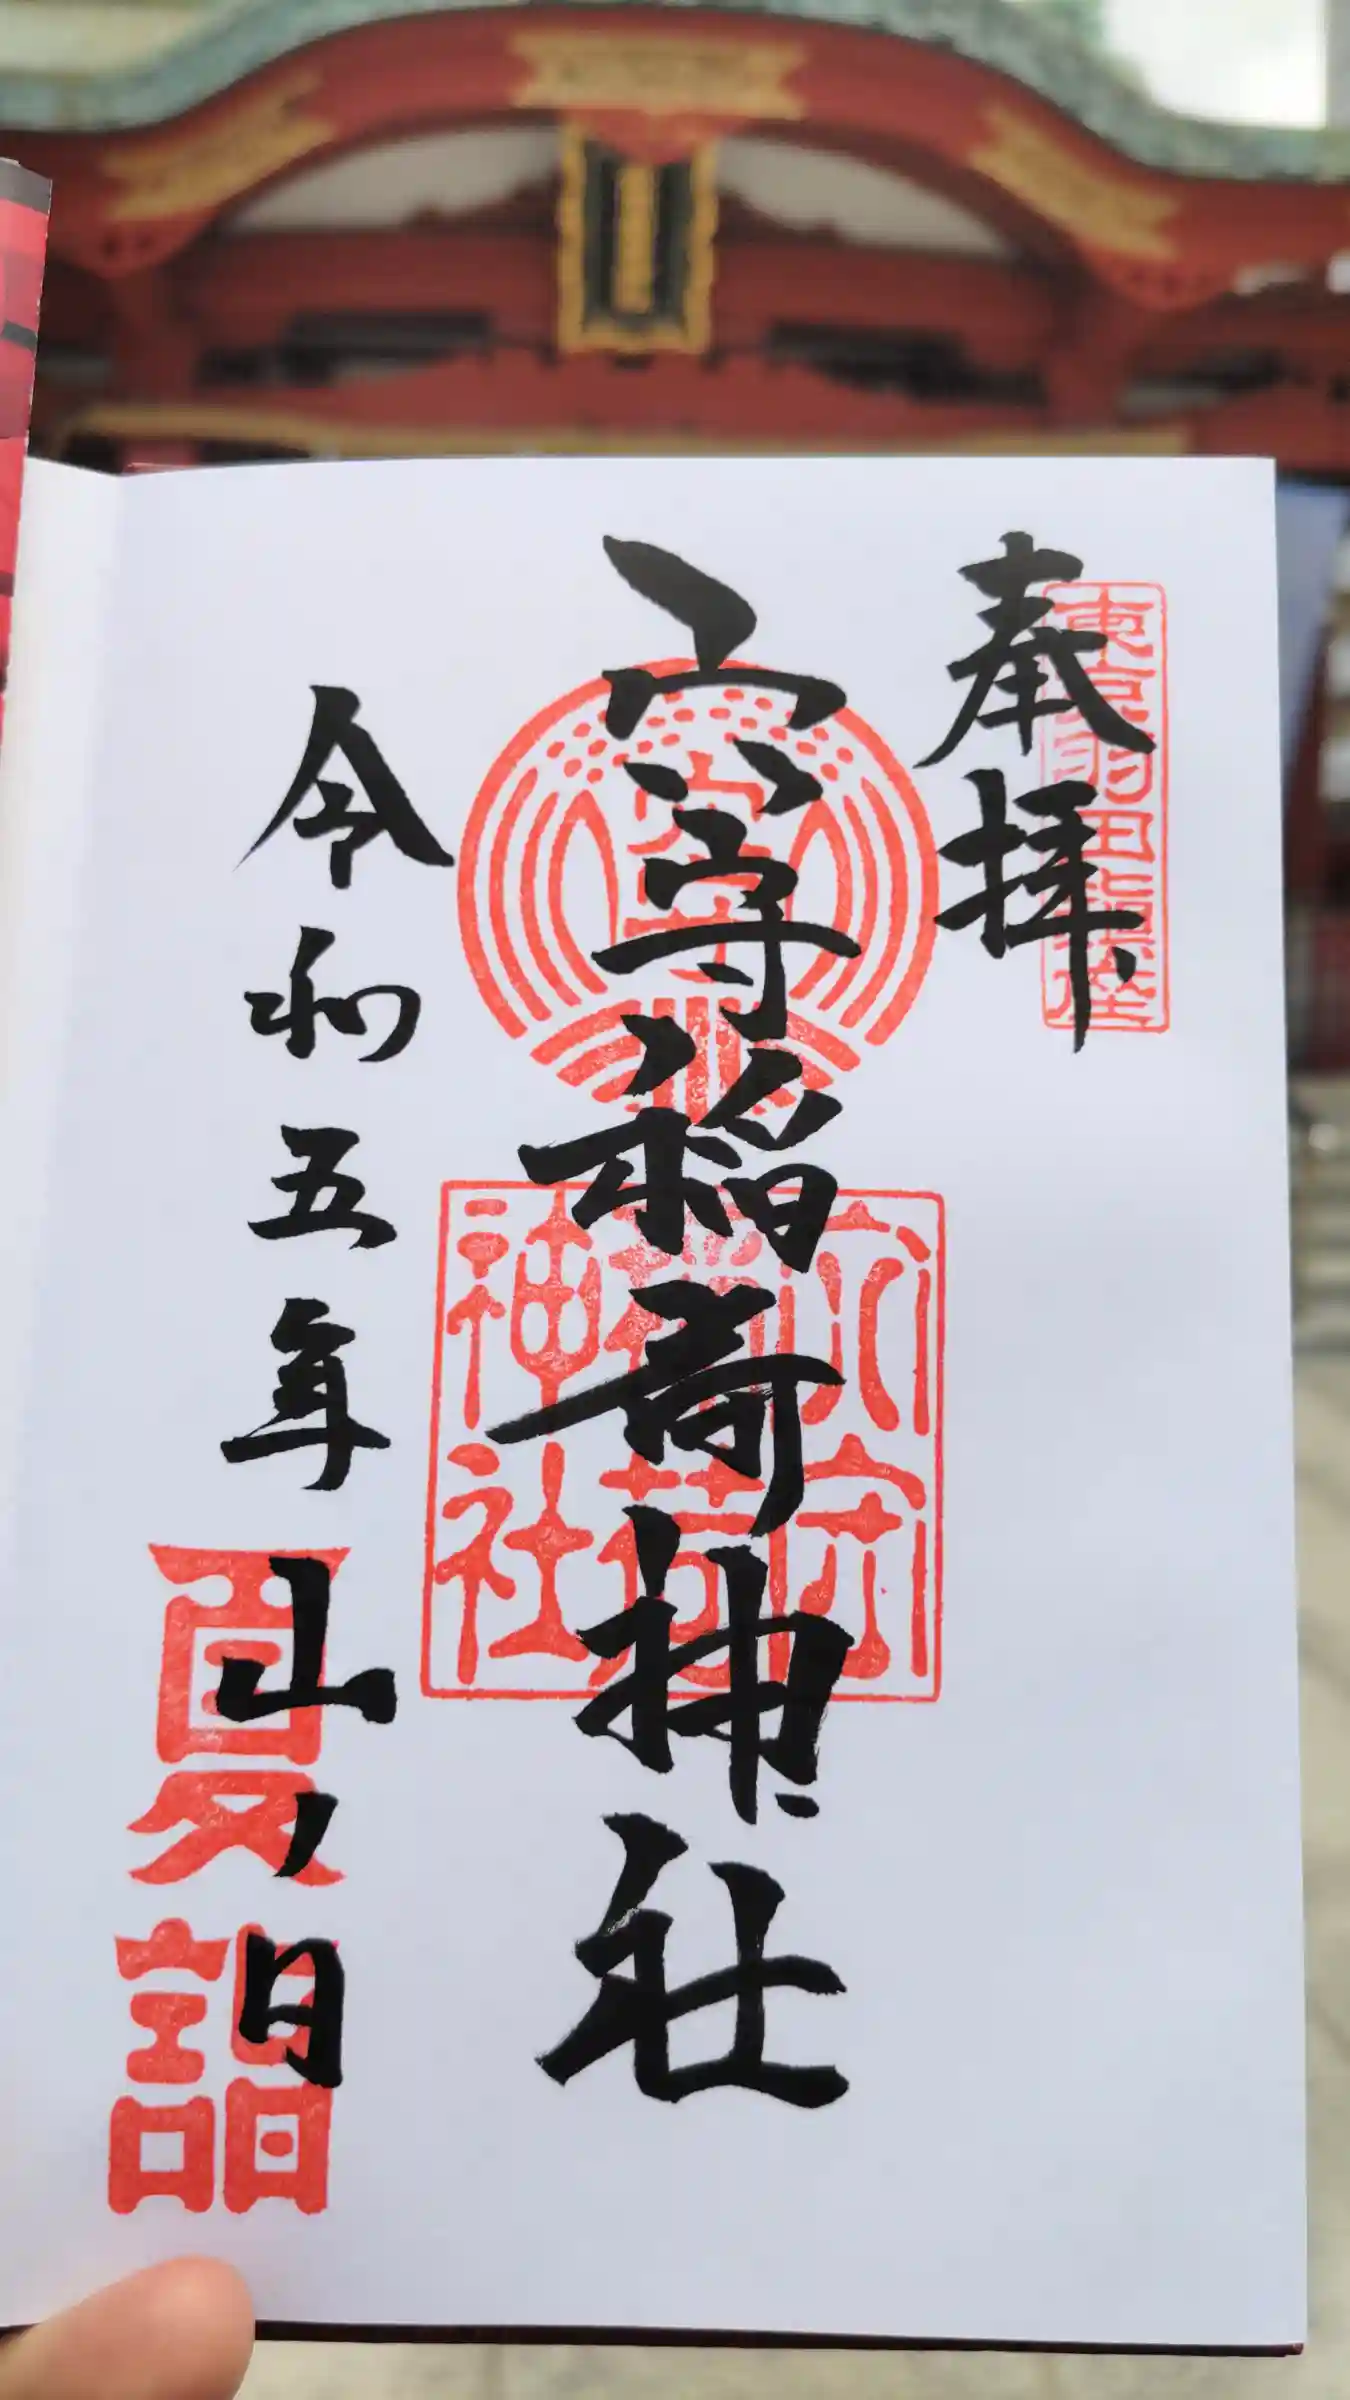 奉拝
東京羽田鎮座
穴守稲荷神社
穴守
穴守
稲荷
神社
令和五年山ノ日
夏詣